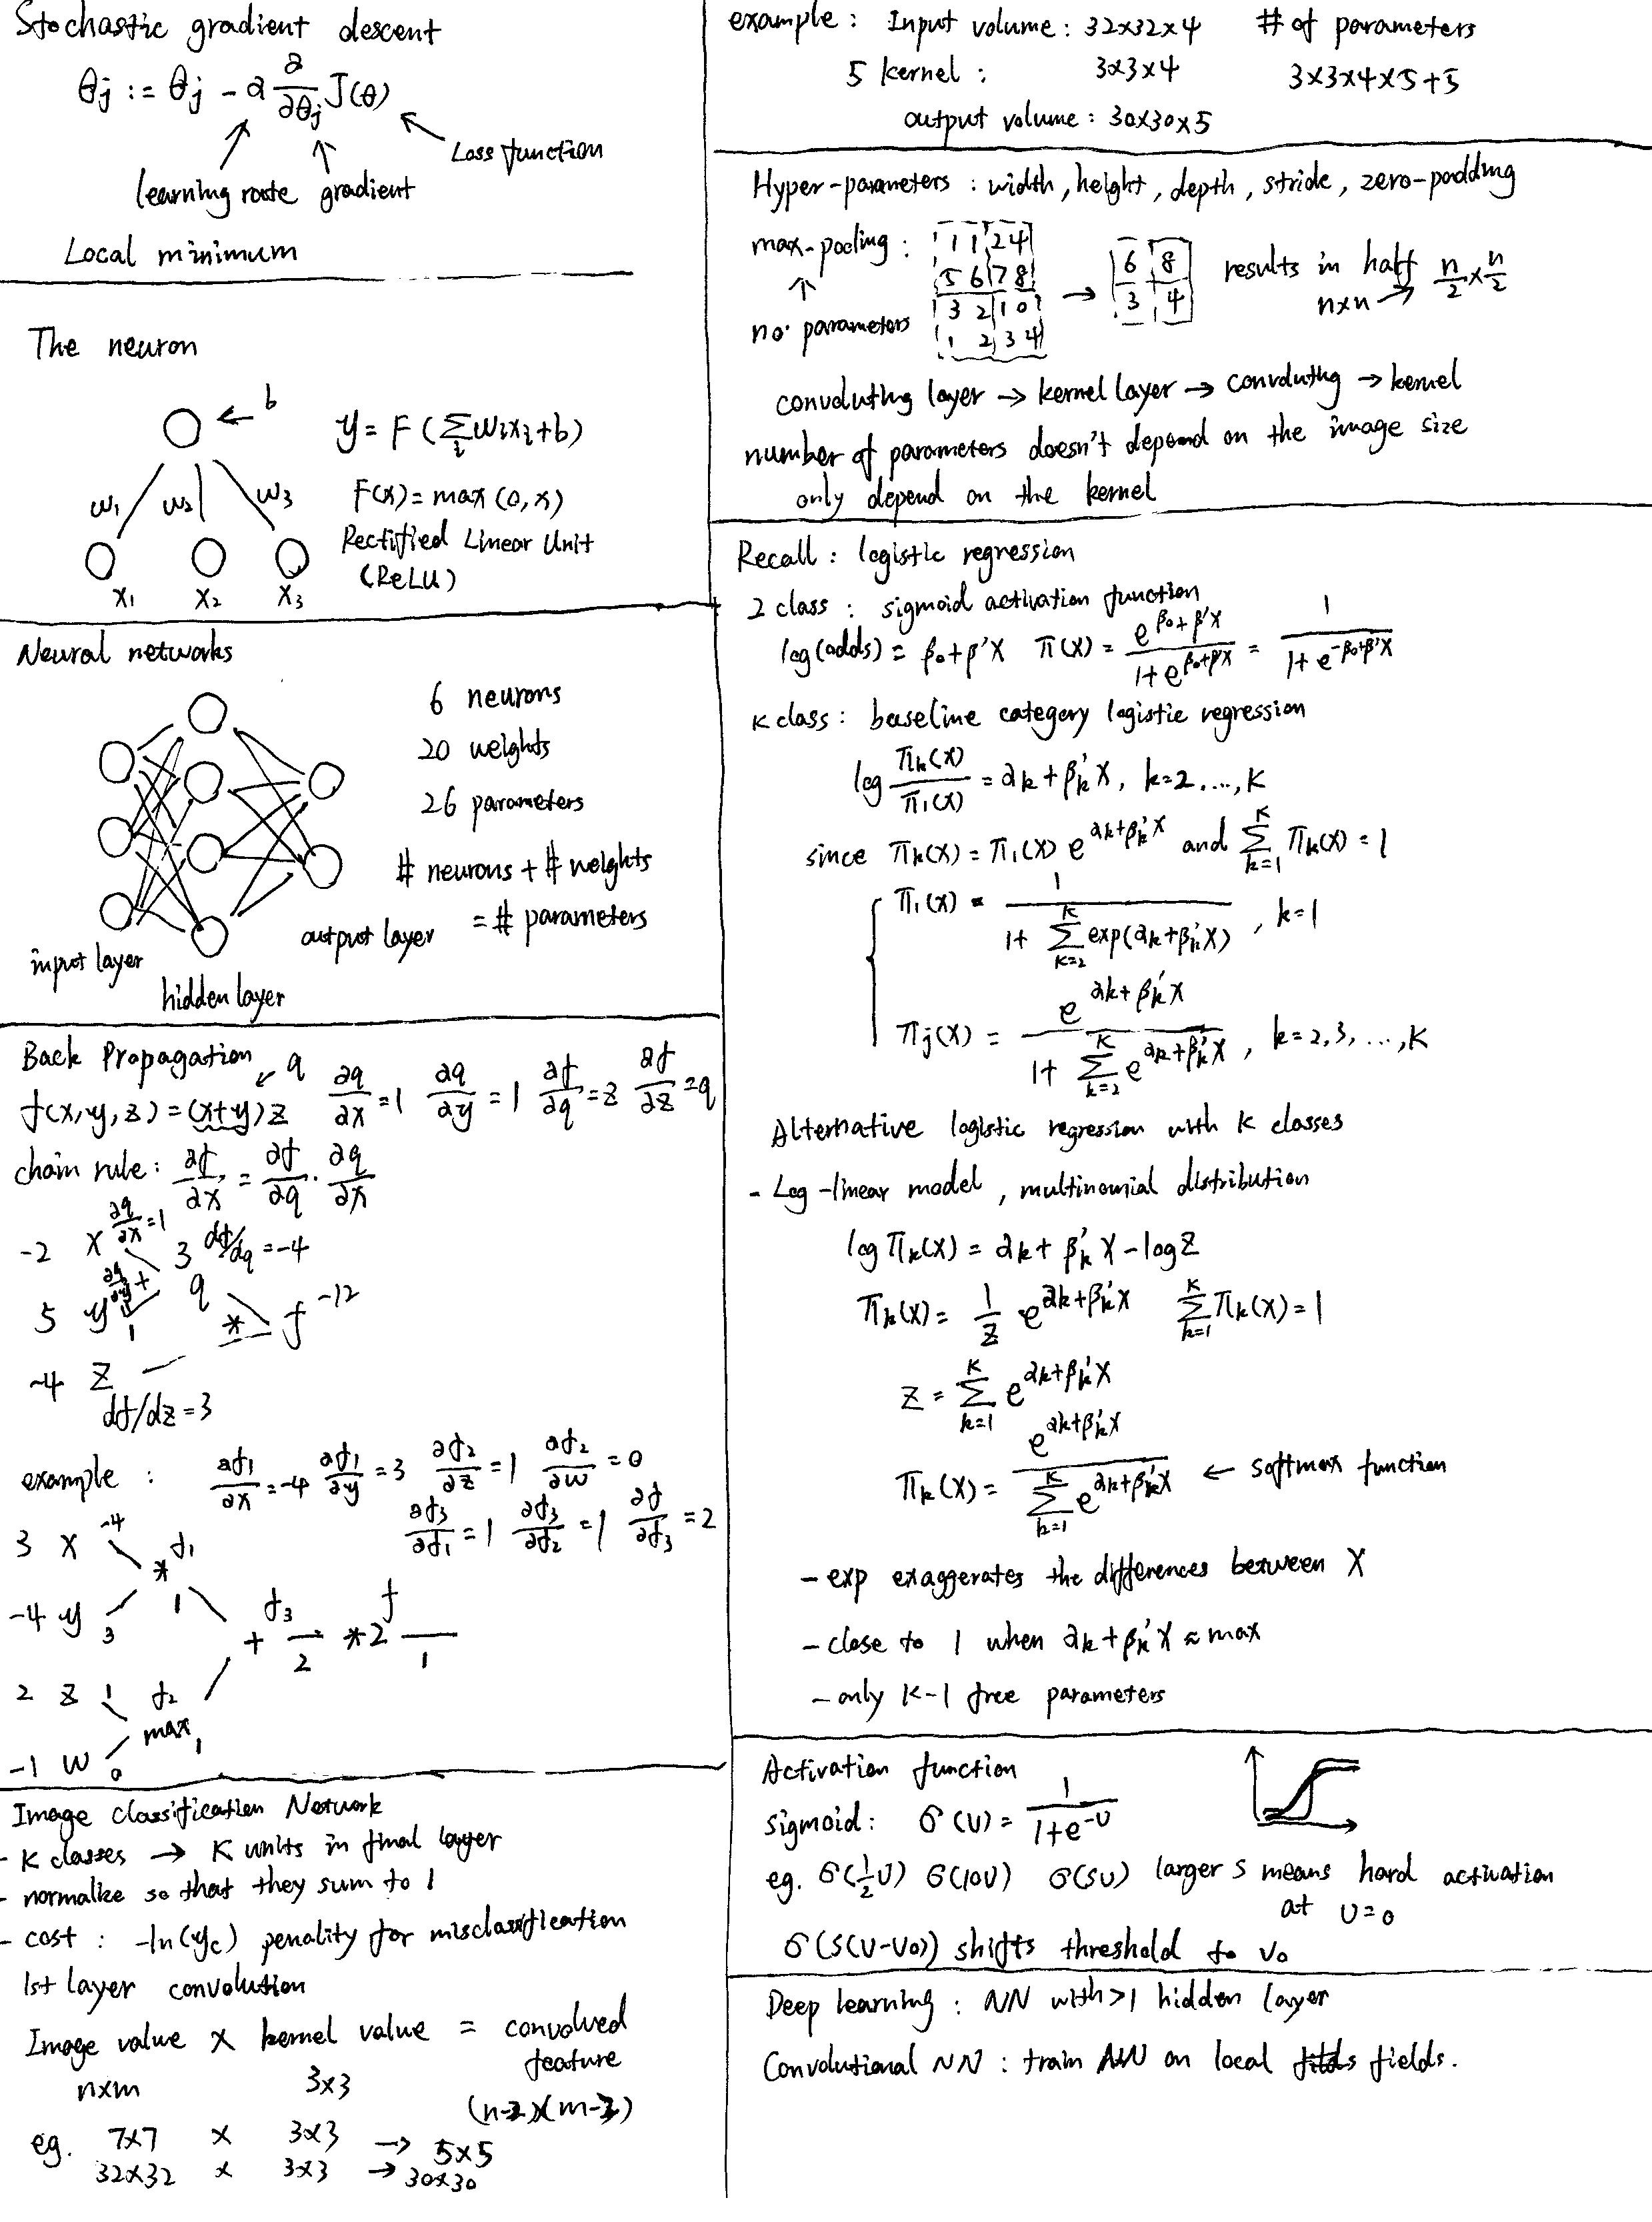 Stochastic gradient descent
θj := θj - α ∂/∂θj J(θ)
Loss function
learning rate gradient
Local minimum
The neuron
b
y = F(∑i wixi+b)
w1 w2 w3
F(x) = max(0,x)
Rectified Linear Unit
(ReLU)
x1 x2 x3
Neural networks
6 neurons
20 weights
26 parameters
# neurons + # weights
= # parameters
output layer
input layer
hidden layer
Back Propagation
q
f(x,y,z) = (x+y)z ∂q/∂x = 1 ∂q/∂y = 1 ∂f/∂q = z ∂f/∂z = q
chain rule: ∂f/∂x = ∂f/∂q · ∂q/∂x
-2 x ∂q/∂x = 1 3 df/dq = -4
5 y ∂q/∂y 1 + q * f -12
-4 z
df/dz = 3
example : ∂f1/∂x = -4 ∂f1/∂y = 3 ∂f2/∂z = 1 ∂f2/∂w = 0
∂f3/∂f1 = 1 ∂f3/∂f2 = 1 ∂f/∂f3 = 2
3 x -4 * f1
-4 y 3 1 f3 f
+ 2 *2 1
2 z 1 f2
max 1
-1 w 0
Image Classification Network
- K classes → K units in final layer
- normalize so that they sum to 1
- cost : -ln(yc) penality for misclassification
1st layer convolution
Image value x kernel value = convolved
feature
nxm 3x3
(n-2)x(m-2)
eg. 7x7 x 3x3 → 5x5
32x32 x 3x3 → 30x30
example : Input volume : 32x32x4 # of parameters
5 kernel : 3x3x4 3x3x4x5+5
output volume : 30x30x5
Hyper-parameters : width, height, depth, stride, zero-padding
max-pooling : 1 1 2 4
5 6 7 8
3 2 1 0
1 2 3 4
→ 6 8
3 4
results in half
nxn → n/2 x n/2
no parameters
convoluting layer → kernel layer → convoluting → kernel
number of parameters doesn't depend on the image size
only depend on the kernel
Recall : logistic regression
2 class : sigmoid activation function
log(odds) = β0+β'X π(X) = e^(β0+β'X) / 1+e^(β0+β'X) = 1 / 1+e^(-β0+β'X)
K class : baseline category logistic regression
log πk(X)/π1(X) = αk+βk'X, k=2,...,K
since πk(X) = π1(X) e^(αk+βk'X) and ∑k=1^K πk(X) = 1
π1(X) = 1 / 1+∑k=2^K exp(αk+βk'X) , k=1
πj(X) = e^(αk+βk'X) / 1+∑k=2^K e^(αk+βk'X) , k=2,3,...,K
Alternative logistic regression with K classes
- Log-linear model, multinomial distribution
log πk(X) = αk+βk'X - logZ
πk(X) = 1/Z e^(αk+βk'X) ∑k=1^K πk(X) = 1
Z = ∑k=1^K e^(αk+βk'X)
πk(X) = e^(αk+βk'X) / ∑k=1^K e^(αk+βk'X) ← softmax function
- exp exaggerates the differences between X
- close to 1 when αk+βk'X ≈ max
- only K-1 free parameters
Activation function
sigmoid : σ(υ) = 1 / 1+e^-υ
eg. σ(½υ) σ(10υ) σ(sυ) larger s means hard activation
at υ=0
σ(s(υ-υ0)) shifts threshold to υ0
Deep learning : NN with >1 hidden layer
Convolutional NN : train NN on local fields.